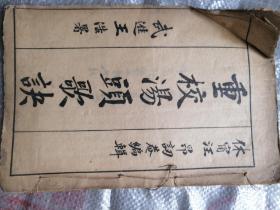 休寧汪昂訒菴編輯
重校湯頭歌訣
武進王浩署